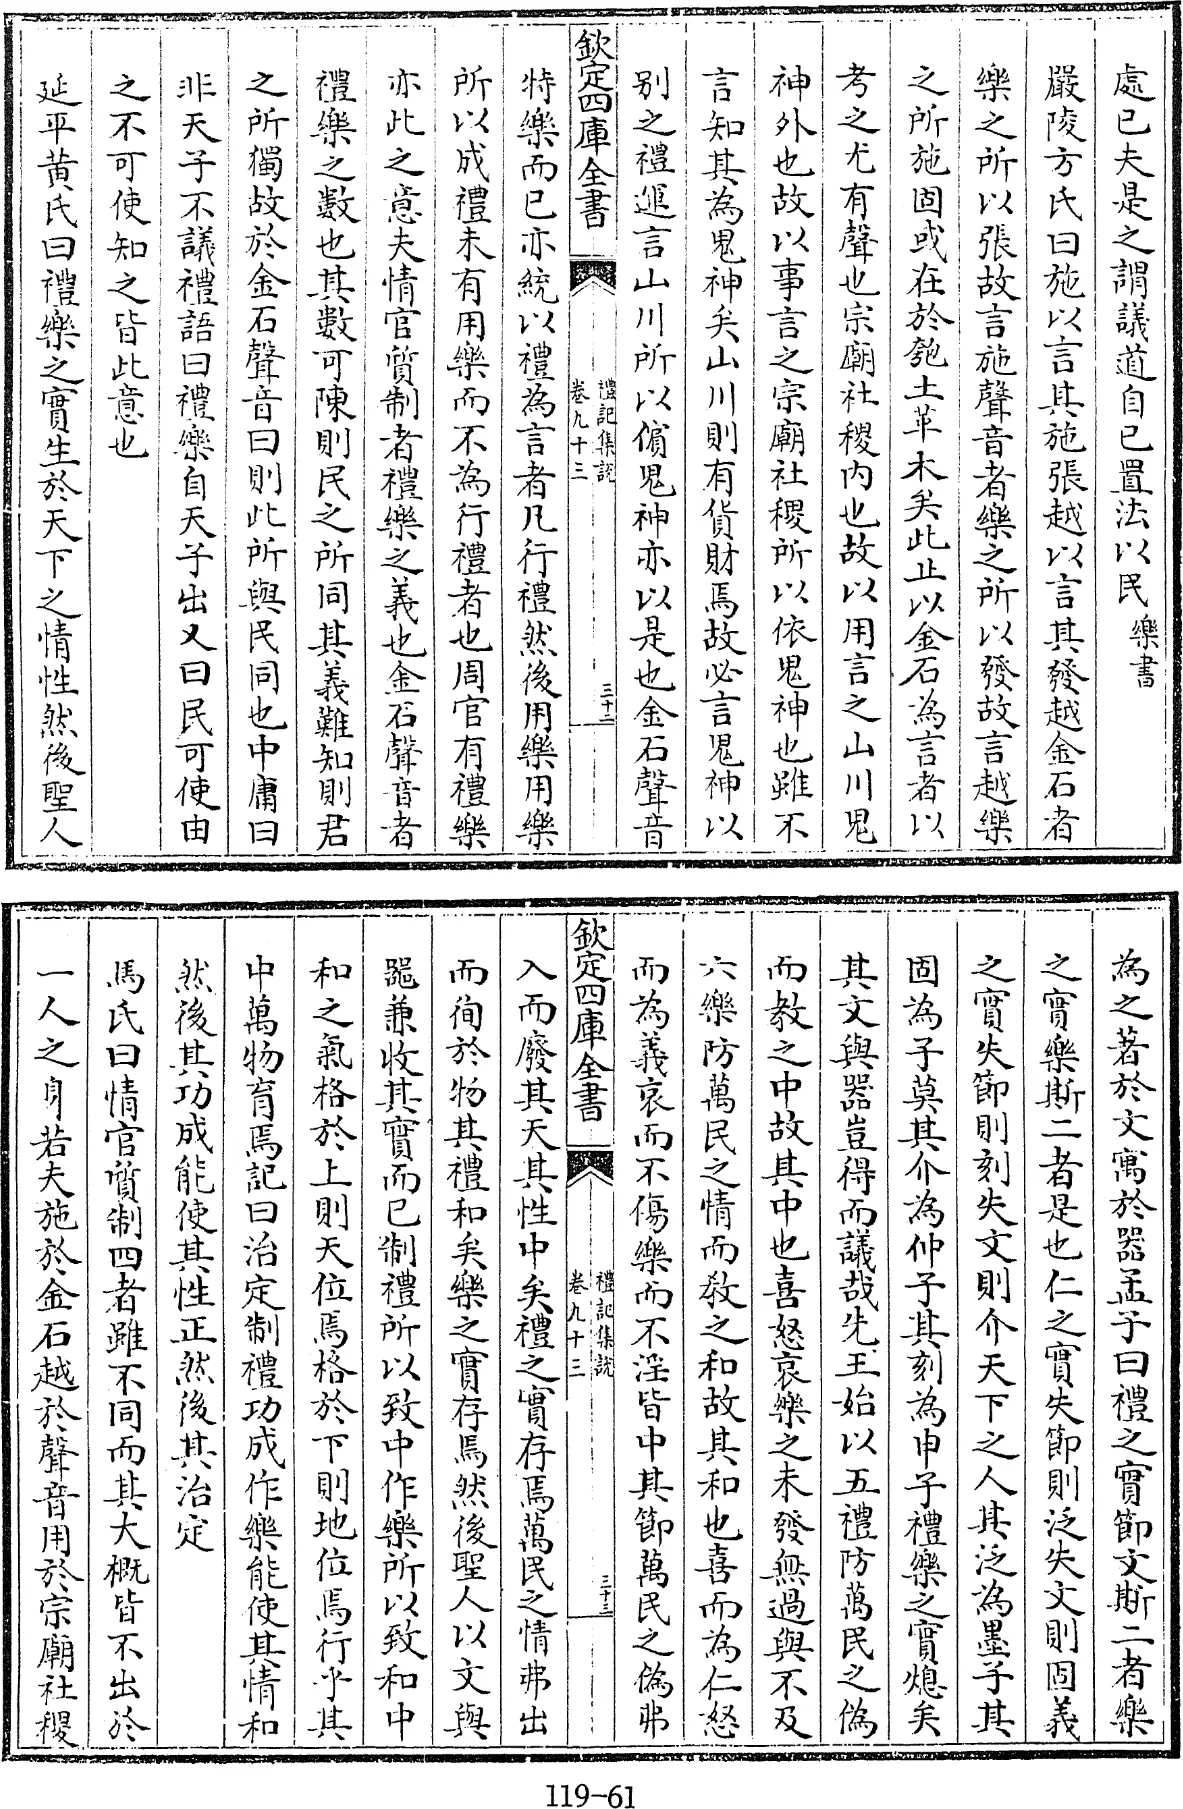 處已夫是之謂議道自已置法以民樂書
嚴陵方氏曰施以言其施張越以言其發越金石者
樂之所以張故言施聲音者樂之所以發故言越樂
之所施固或在於匏土革木矣此止以金石為言者以
考之尤有聲也宗廟社稷内也故以用言之山川鬼
神外也故以事言之宗廟社稷所以依鬼神也雖不
言知其為鬼神矣山川則有貨財焉故必言鬼神以
别之禮運言山川所以儐鬼神亦以是也金石聲音
欽定四庫全書
禮記集說
卷九十三
三十二
特樂而已亦統以禮為言者凡行禮然後用樂用樂
所以成禮未有用樂而不為行禮者也周官有禮樂
亦此之意夫情官質制者禮樂之義也金石聲音者
禮樂之數也其數可陳則民之所同其義難知則君
之所獨故於金石聲音曰則此所與民同也中庸曰
非天子不議禮語曰禮樂自天子出又曰民可使由
之不可使知之皆此意也
延平黄氏曰禮樂之實生於天下之情性然後聖人
為之著於文寓於器孟子曰禮之實節文斯二者樂
之實樂斯二者是也仁之實失節則泛失文則固義
之實失節則刻失文則介天下之人其泛為墨子其
固為子莫其介為仲子其刻為申子禮樂之實熄矣
其文與器豈得而議哉先王始以五禮防萬民之偽
而教之中故其中也喜怒哀樂之未發無過與不及
六樂防萬民之情而教之和故其和也喜而為仁怒
而為義哀而不傷樂而不淫皆中其節萬民之偽弗
欽定四庫全書
禮記集說
卷九十三
三十三
入而廢其天其性中矣禮之實存焉萬民之情弗出
而徇於物其禮和矣樂之實存焉然後聖人以文與
器兼收其實而已制禮所以致中作樂所以致和中
和之氣格於上則天位焉格於下則地位焉行乎其
中萬物育焉記曰治定制禮功成作樂能使其情和
然後其功成能使其性正然後其治定
馬氏曰情官質制四者雖不同而其大概皆不出於
一人之身若夫施於金石越於聲音用於宗廟社稷
119-61